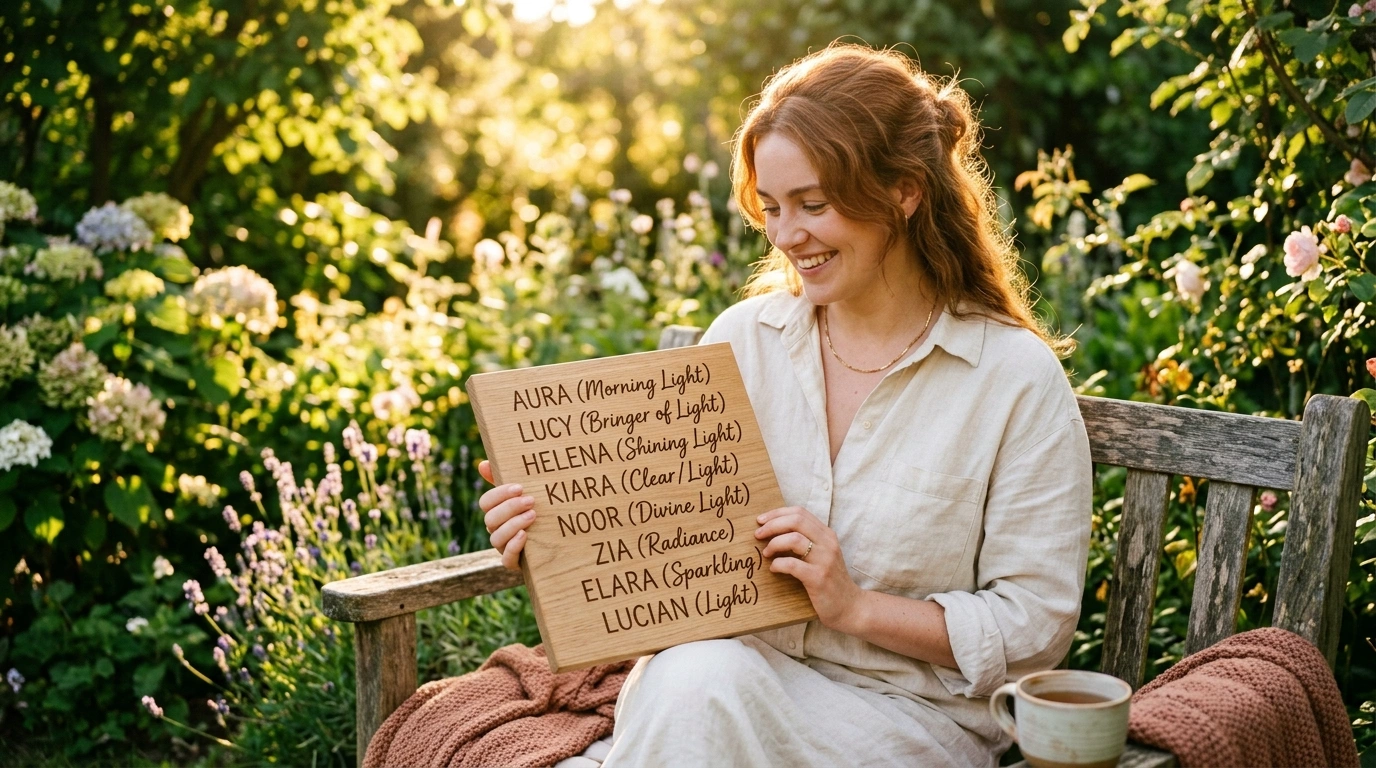 AURA (Morning Light)
LUCY (Bringer of Light)
HELENA (Shining Light)
KIARA (Clear/Light)
NOOR (Divine Light)
ZIA (Radiance)
ELARA (Sparkling)
LUCIAN (Light)